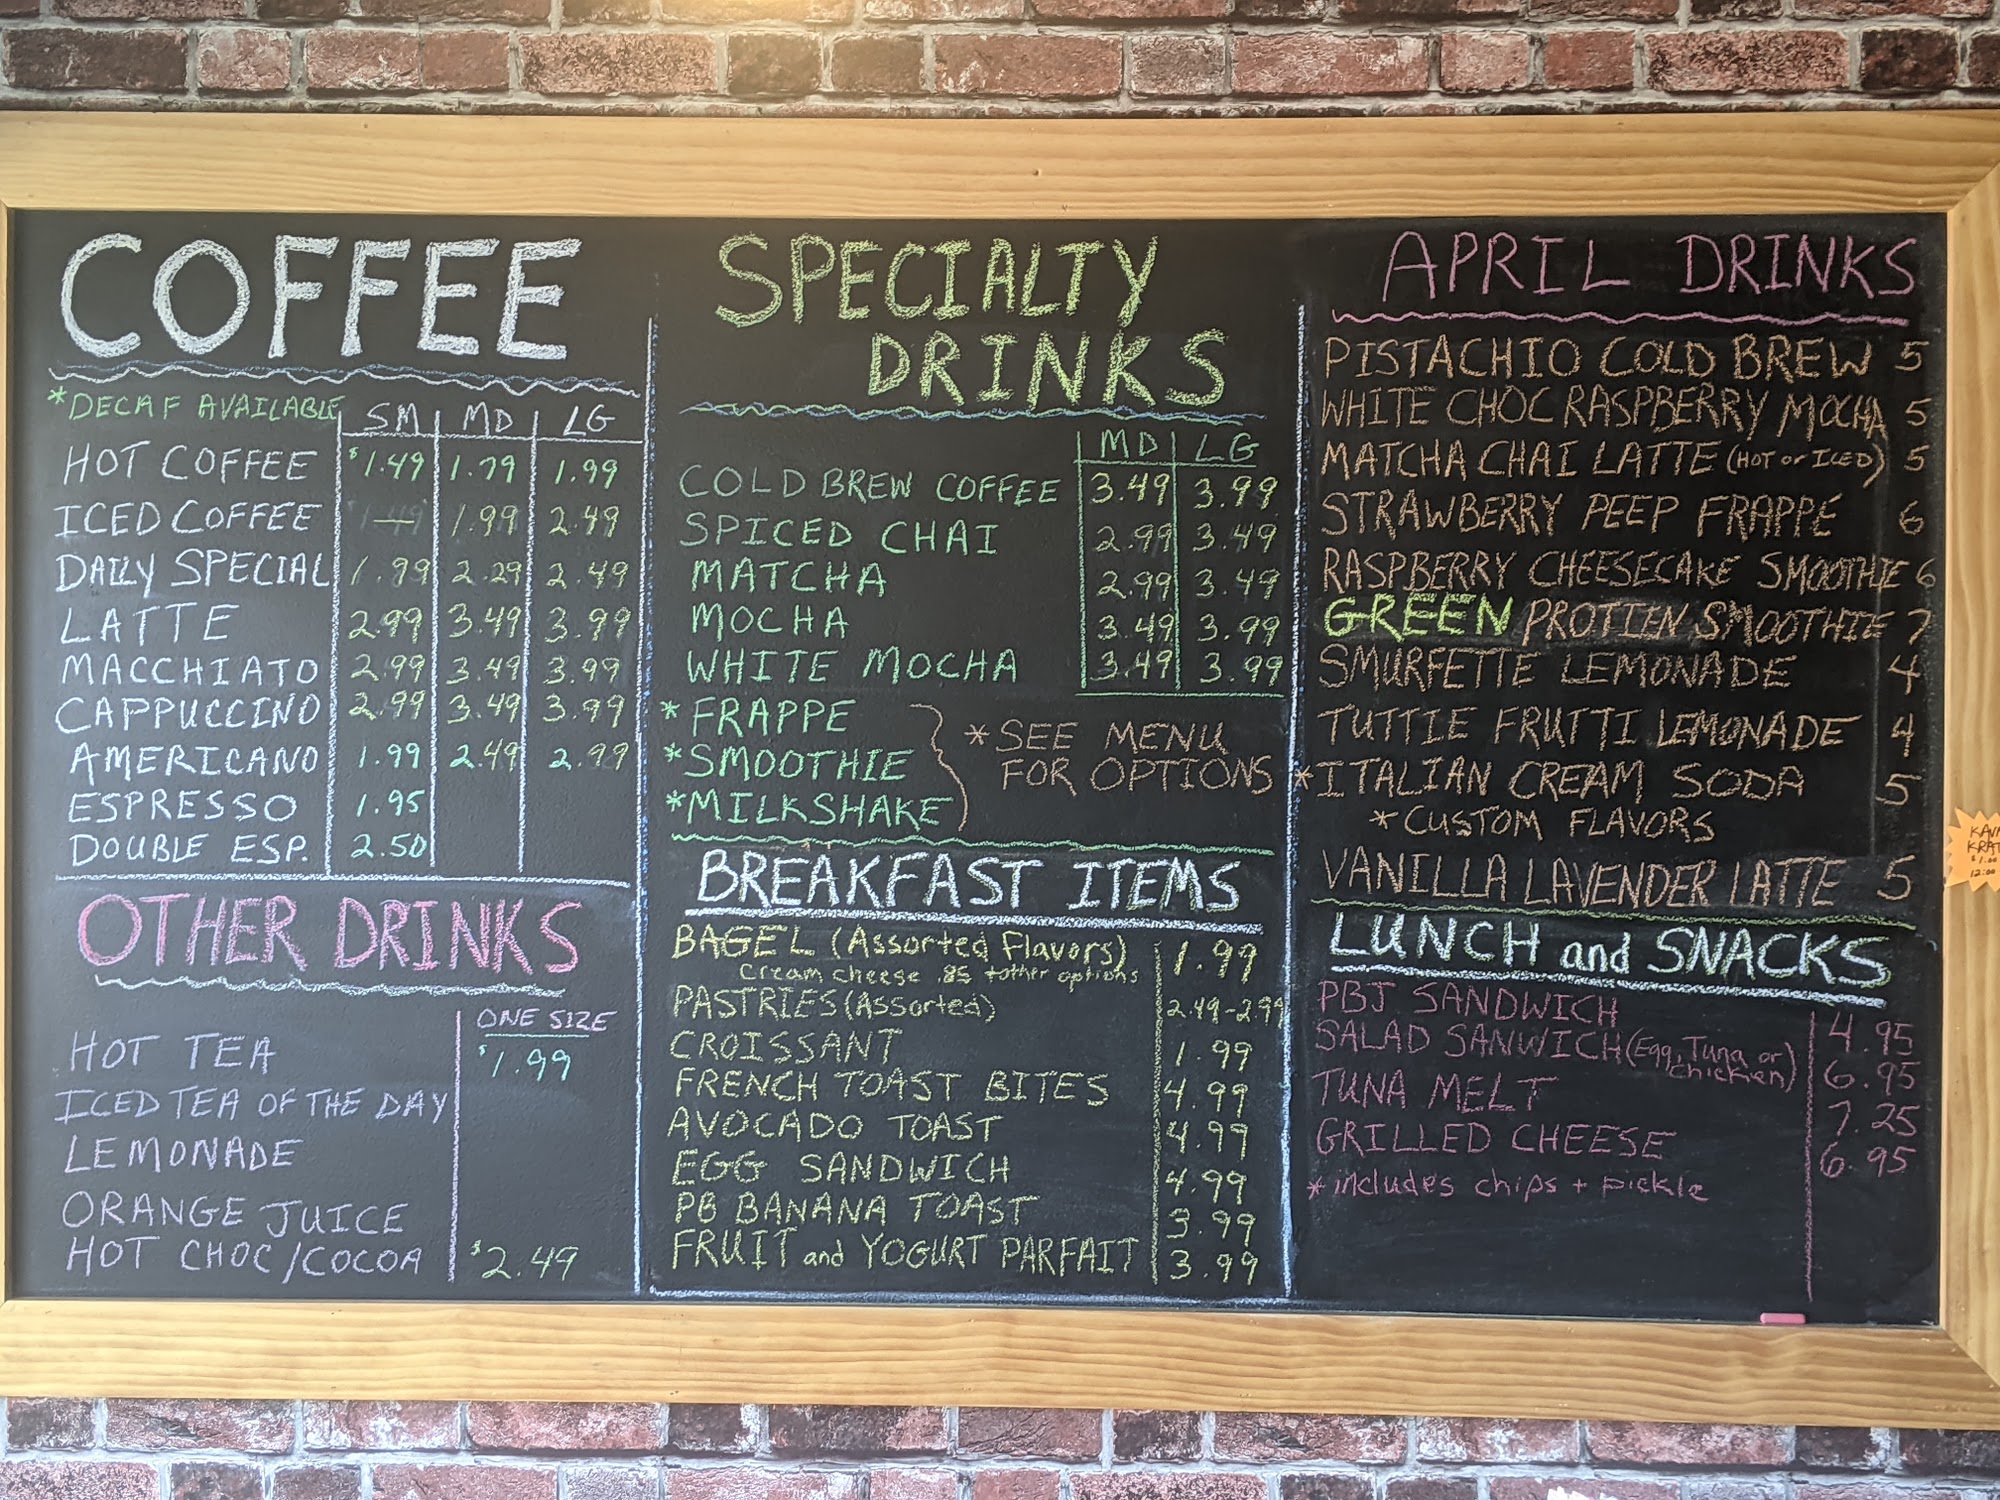 COFFEE
*DECAF AVAILABLE SM MD LG
HOT COFFEE $1.49 1.79 1.99
ICED COFFEE — 1.99 2.49
DAILY SPECIAL 1.99 2.29 2.49
LATTE 2.99 3.49 3.99
MACCHIATO 2.99 3.49 3.99
CAPPUCCINO 2.99 3.49 3.99
AMERICANO 1.99 2.49 2.99
ESPRESSO 1.95
DOUBLE ESP. 2.50
OTHER DRINKS
ONE SIZE
HOT TEA $1.99
ICED TEA OF THE DAY
LEMONADE
ORANGE JUICE
HOT CHOC/COCOA $2.49
SPECIALTY
DRINKS
MD LG
COLD BREW COFFEE 3.49 3.99
SPICED CHAI 2.99 3.49
MATCHA 2.99 3.49
MOCHA 3.49 3.99
WHITE MOCHA 3.49 3.99
*FRAPPE
*SMOOTHIE
*MILKSHAKE
*SEE MENU
FOR OPTIONS
BREAKFAST ITEMS
BAGEL (Assorted Flavors) 1.99
Cream cheese .85 + other options
PASTRIES (Assorted) 2.49-2.99
CROISSANT 1.99
FRENCH TOAST BITES 4.99
AVOCADO TOAST 4.99
EGG SANDWICH 4.99
PB BANANA TOAST 3.99
FRUIT and YOGURT PARFAIT 3.99
APRIL DRINKS
PISTACHIO COLD BREW 5
WHITE CHOC RASPBERRY MOCHA 5
MATCHA CHAI LATTE (HOT or ICED) 5
STRAWBERRY PEEP FRAPPE 6
RASPBERRY CHEESECAKE SMOOTHIE 6
GREEN PROTIEN SMOOTHIE 7
SMURFETTE LEMONADE 4
TUTTIE FRUTTI LEMONADE 4
*ITALIAN CREAM SODA 5
*CUSTOM FLAVORS
VANILLA LAVENDER LATTE 5
LUNCH and SNACKS
PBJ SANDWICH 4.95
SALAD SANWICH (Egg, Tuna or 6.95
chicken)
TUNA MELT 7.25
GRILLED CHEESE 6.95
*includes chips + pickle
$1.00
12:00